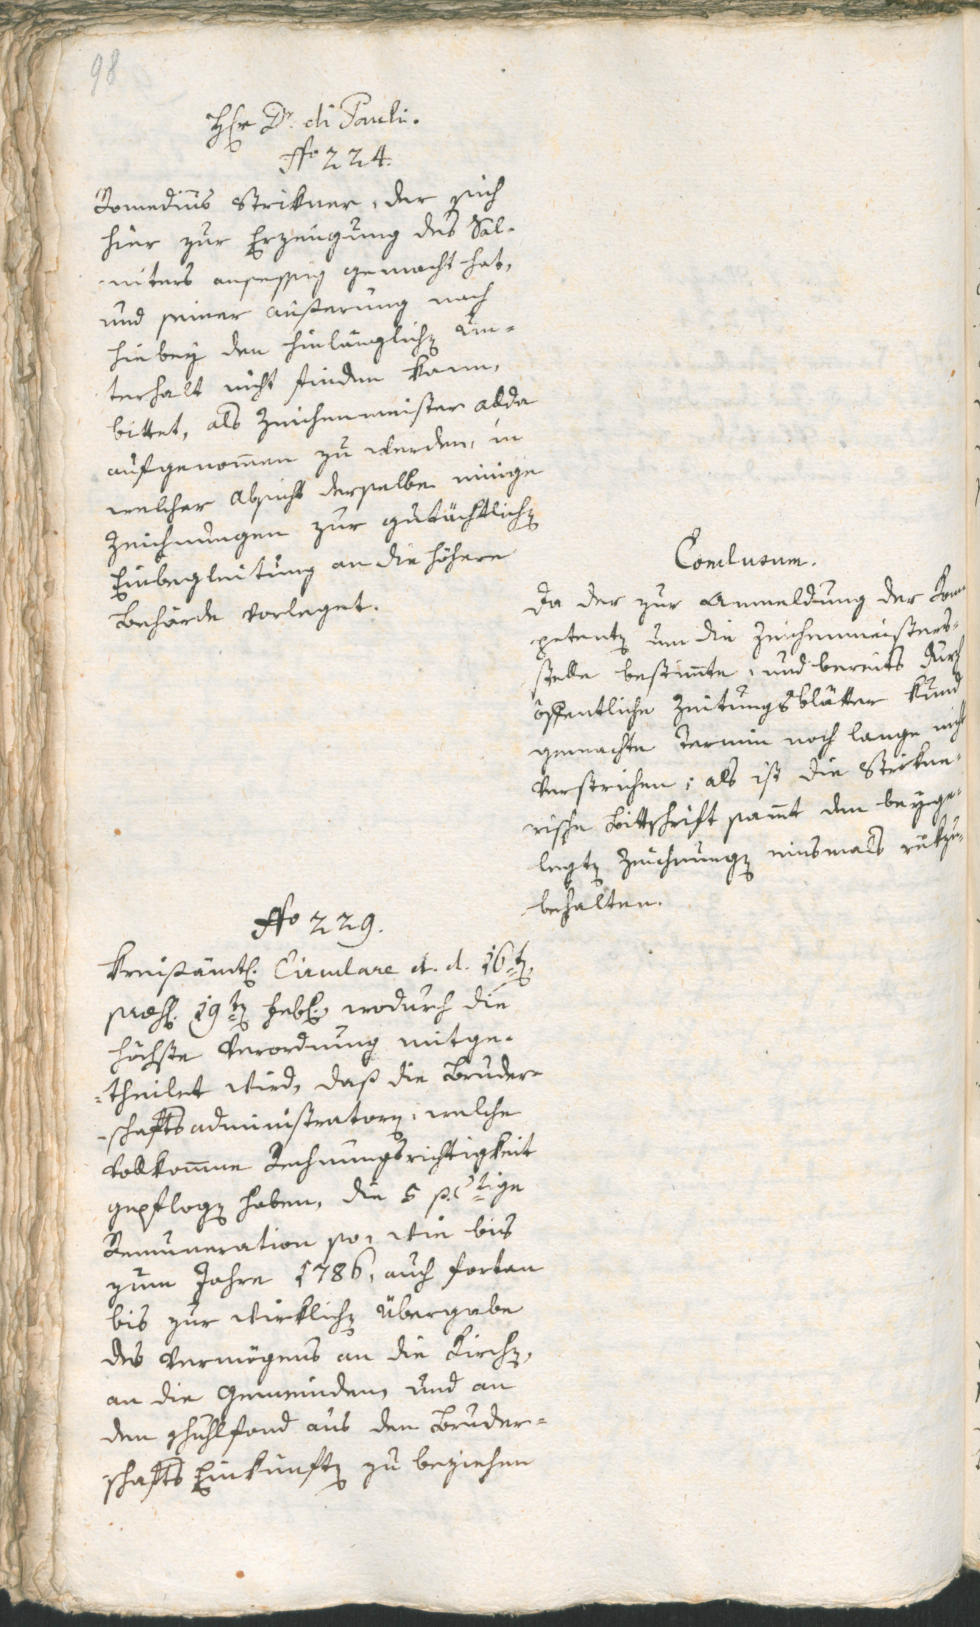 98
Hr Dr. di Pauli.
No 224.
Romedius Strikner, der sich
hier zur Erzeugung des Sal-
niters ansessig gemacht hat,
und seiner äusserung nach
hiebey den hinlänglichen Un-
terhalt nicht finden kann,
bittet, als Zeichenmeister allda
aufgenommen zu werden, in
welcher Absicht derselbe einige
Zeichnungen zur gutächtlichen
Einbegleitung an die höhere
Behörde vorleget.
Conclusum.
Da der zur Anmeldung der Kom
petenten um die Zeichenmeisters-
stelle bestimmte, und bereits durch
öffentliche Zeitungsblätter kund
gemachte Termin noch lange nicht
verstrichen; als ist die Strikne-
rische Bittschrift sammt den beyge-
legten Zeichnungen einsmals rükzu-
behalten.
No 229.
Kreisämtl. Circulare d. d. 16ten
praes. 19ten Feb., wodurch die
höchste Verordnung mitge-
theilet wird, daß die Bruder-
schaftsadministratoren, welche
vollkommne Rechnungsrichtigkeit
gepflogen haben, die 5 p.Ctige
Remuneration so, wie bis
zum Jahre 1786, auch fortan
bis zur wirklichen Übergabe
des Vermögens an die Kirchen,
an die Gemeinden, und an
den Schulfond aus den Bruder-
schafts Einkünften zu beziehen